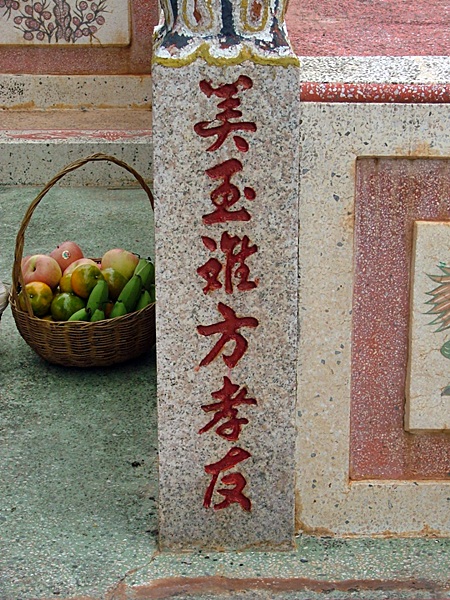 美玉难方孝友